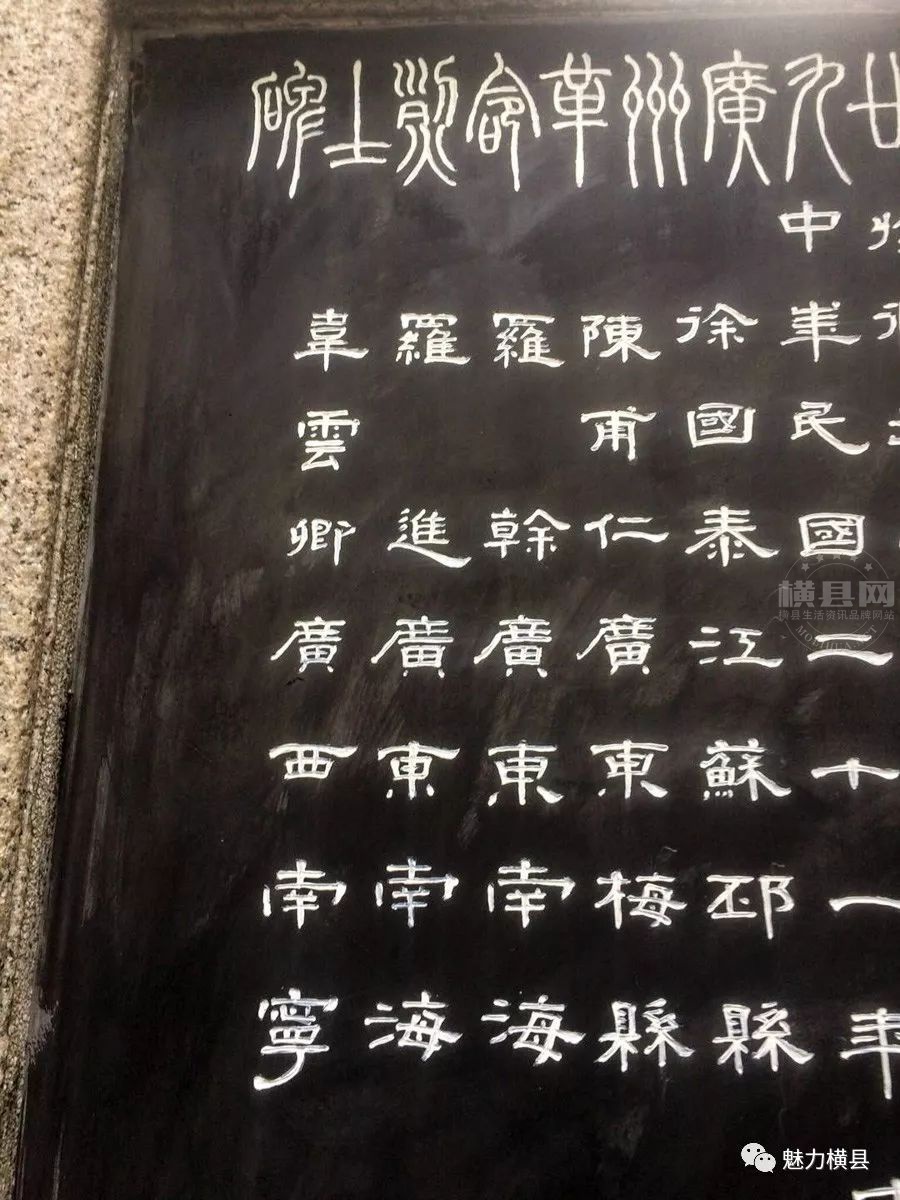 廿九廣州革命烈士碑
中華民國二十一年
徐國泰江蘇邳縣
陳甫仁廣東梅縣
羅 幹廣東南海
羅 進廣東南海
韋雲卿廣西南寧
横县网
横县生活资讯品牌网站
魅力横县